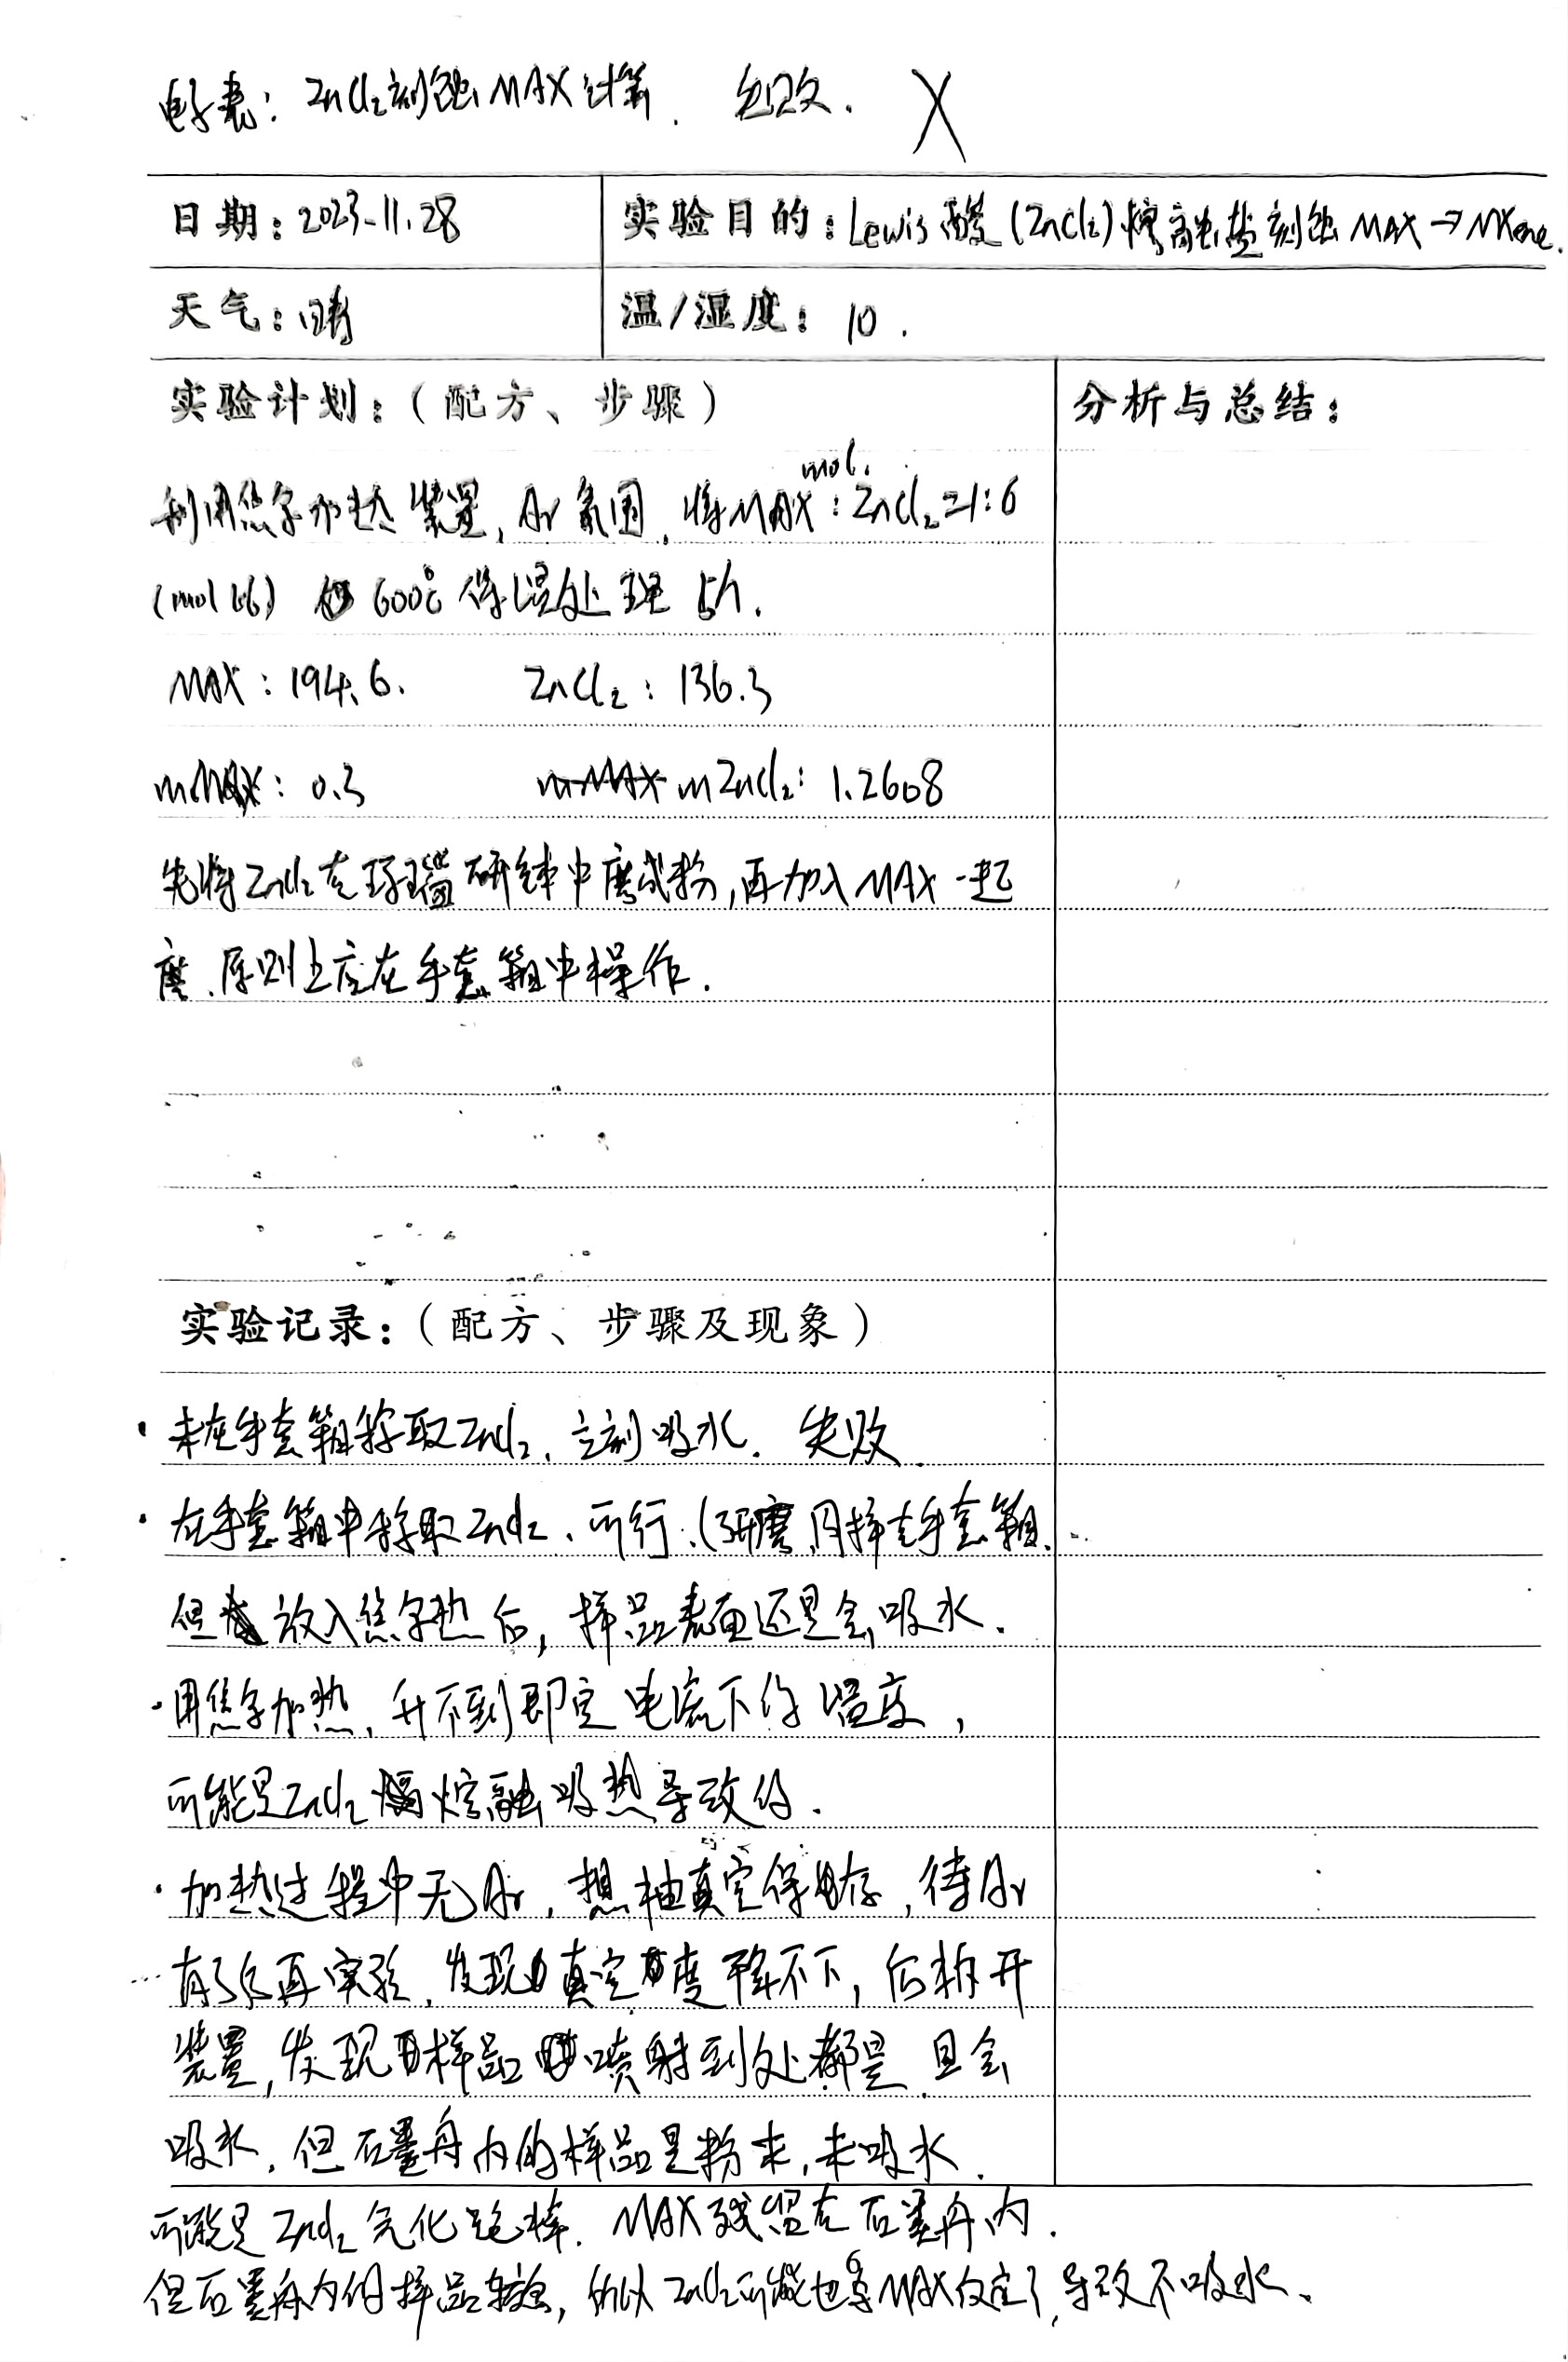 电子表：ZnCl₂刻蚀MAX计算． 失败． X
日期：2023-11.28
实验目的：Lewis酸(ZnCl₂)熔融盐刻蚀MAX→MXene.
天气：晴
温/湿度：10．
实验计划：（配方、步骤）
分析与总结：
利用焦耳加热装置，Ar氛围，将MAX：ZnCl₂=1:6 mol.
(mol比) 600℃保温处理5h.
MAX：194.6. ZnCl₂：136.3
mMAX：0.3 mZnCl₂：1.2608
先将ZnCl₂在玛瑙研钵中磨成粉，再加入MAX一起
磨．原则上应在手套箱中操作．
实验记录：（配方、步骤及现象）
·未在手套箱称取ZnCl₂，立刻吸水．失败
·在手套箱中称取ZnCl₂，可行．(研磨，同样在手套箱．
但放入焦耳热后，样品表面还是会吸水．
·用焦耳加热，升不到即定电流下的温度，
可能是ZnCl₂熔融吸热导致的．
·加热过程中无Ar，想抽真空保存，待Ar
有了后再实验，发现真空度降不下，后拆开
装置，发现样品喷射到处都是 且会
吸水，但石墨舟内的样品是粉末，未吸水．
可能是ZnCl₂气化跑掉．MAX残留在石墨舟内．
但石墨舟内的样品较多，所以ZnCl₂可能也与MAX反应了，导致不吸水．